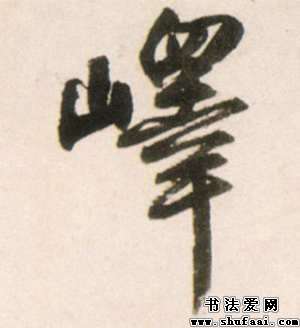 嶧
书法爱网
www.shufaai.com